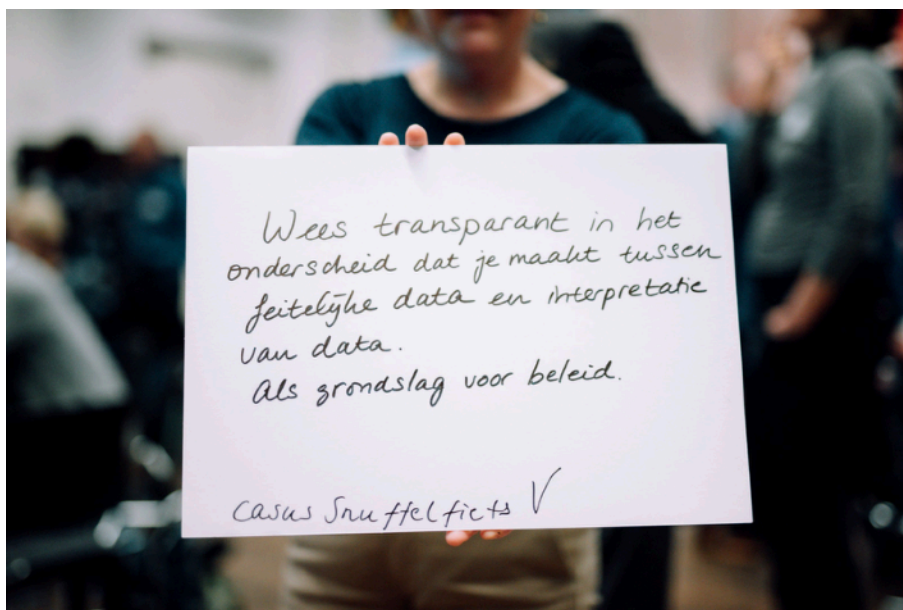 Wees transparant in het
onderscheid dat je maakt tussen
feitelijke data en interpretatie
van data.
Als grondslag voor beleid.
Casus Snuffelfiets V